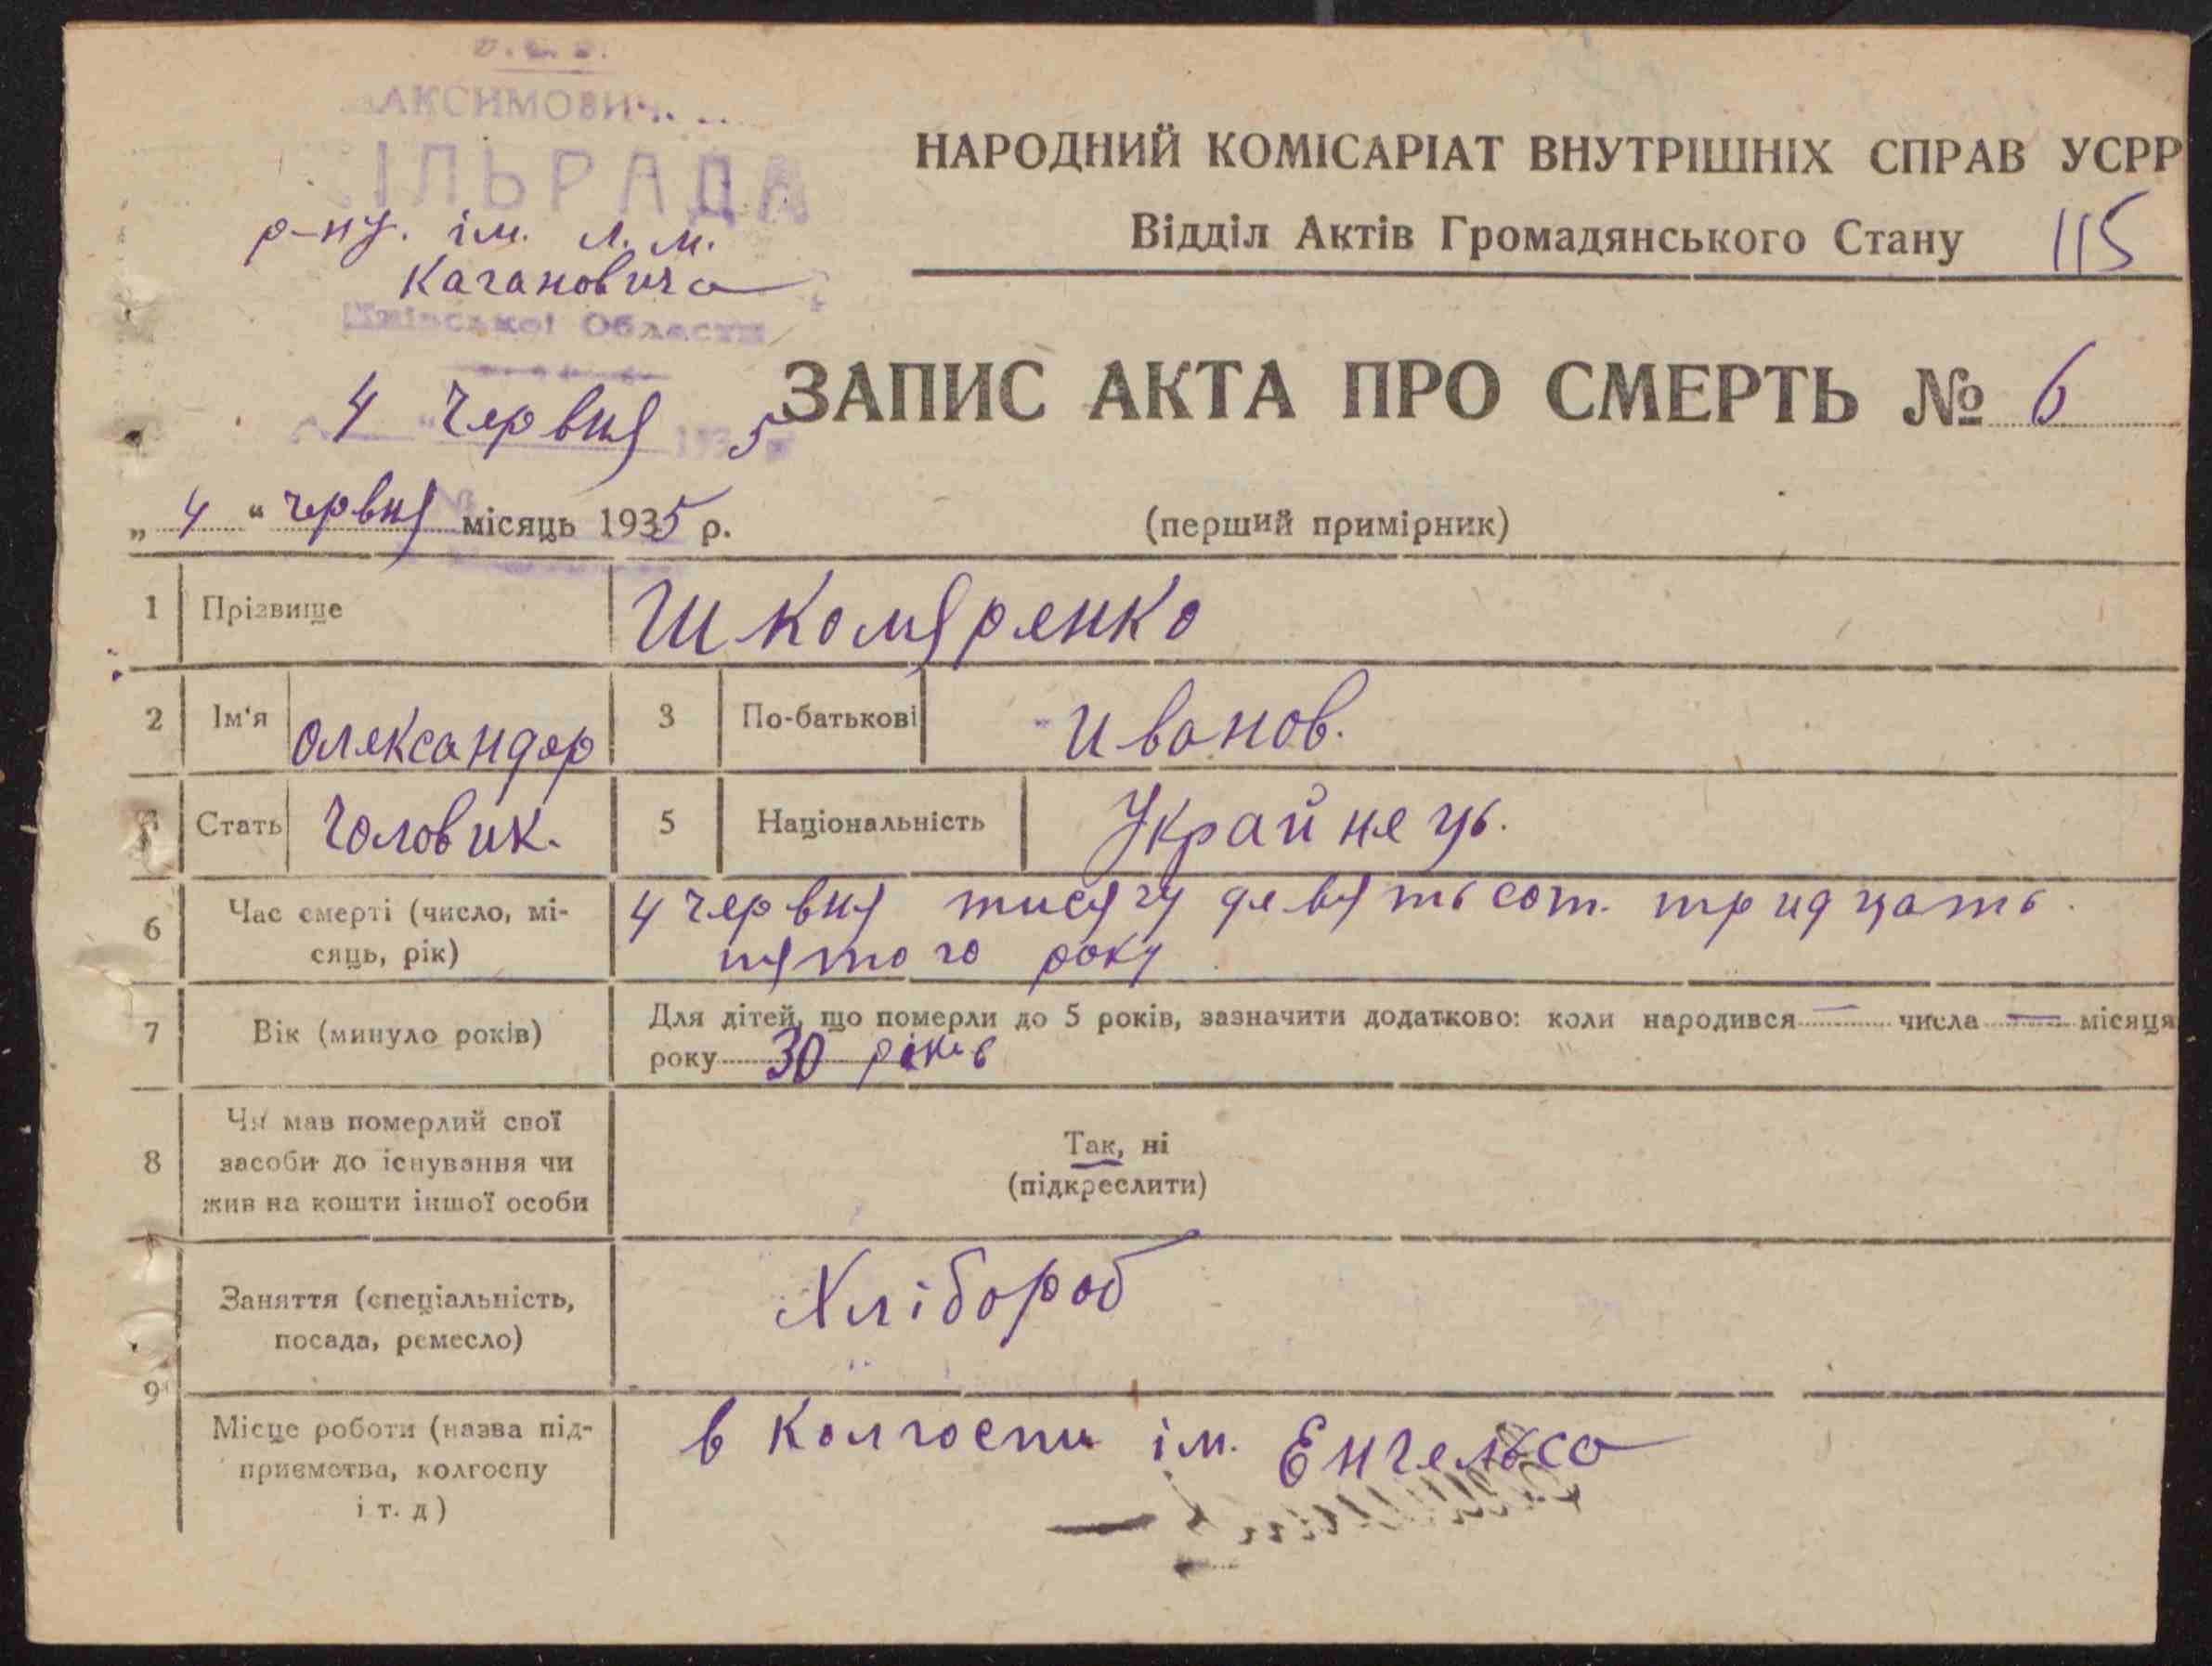 АКСИМОВИЧ
ІЛЬРАДА
р-ну. ім. Л. М.
Кагановича
Київської Области
4 Червня 1935
НАРОДНИЙ КОМІСАРІАТ ВНУТРІШНІХ СПРАВ УСРР
Відділ Актів Громадянського Стану 115
ЗАПИС АКТА ПРО СМЕРТЬ № 6
„ 4 “ червня місяць 1935 р.
(перший примірник)
1 Прізвище Школяренко
2 Ім'я Олександер 3 По-батькові Иванов.
Стать Чоловик. 5 Національність Украйнець.
6 Час смерті (число, мі-
сяць, рік)
4 червня тисячу девятьсот. тридцать.
пятого року
7 Вік (минуло років)
Для дітей, що померли до 5 років, зазначити додатково: коли народився — числа — місяця
року 30 років
8 Чи мав померлий свої
засоби до існування чи
жив на кошти іншої особи
Так, ні
(підкреслити)
Заняття (спеціальність,
посада, ремесло)
Хлібороб
9
Місце роботи (назва під-
приємства, колгоспу
і т. д)
в Колгоспи ім. Енгельса